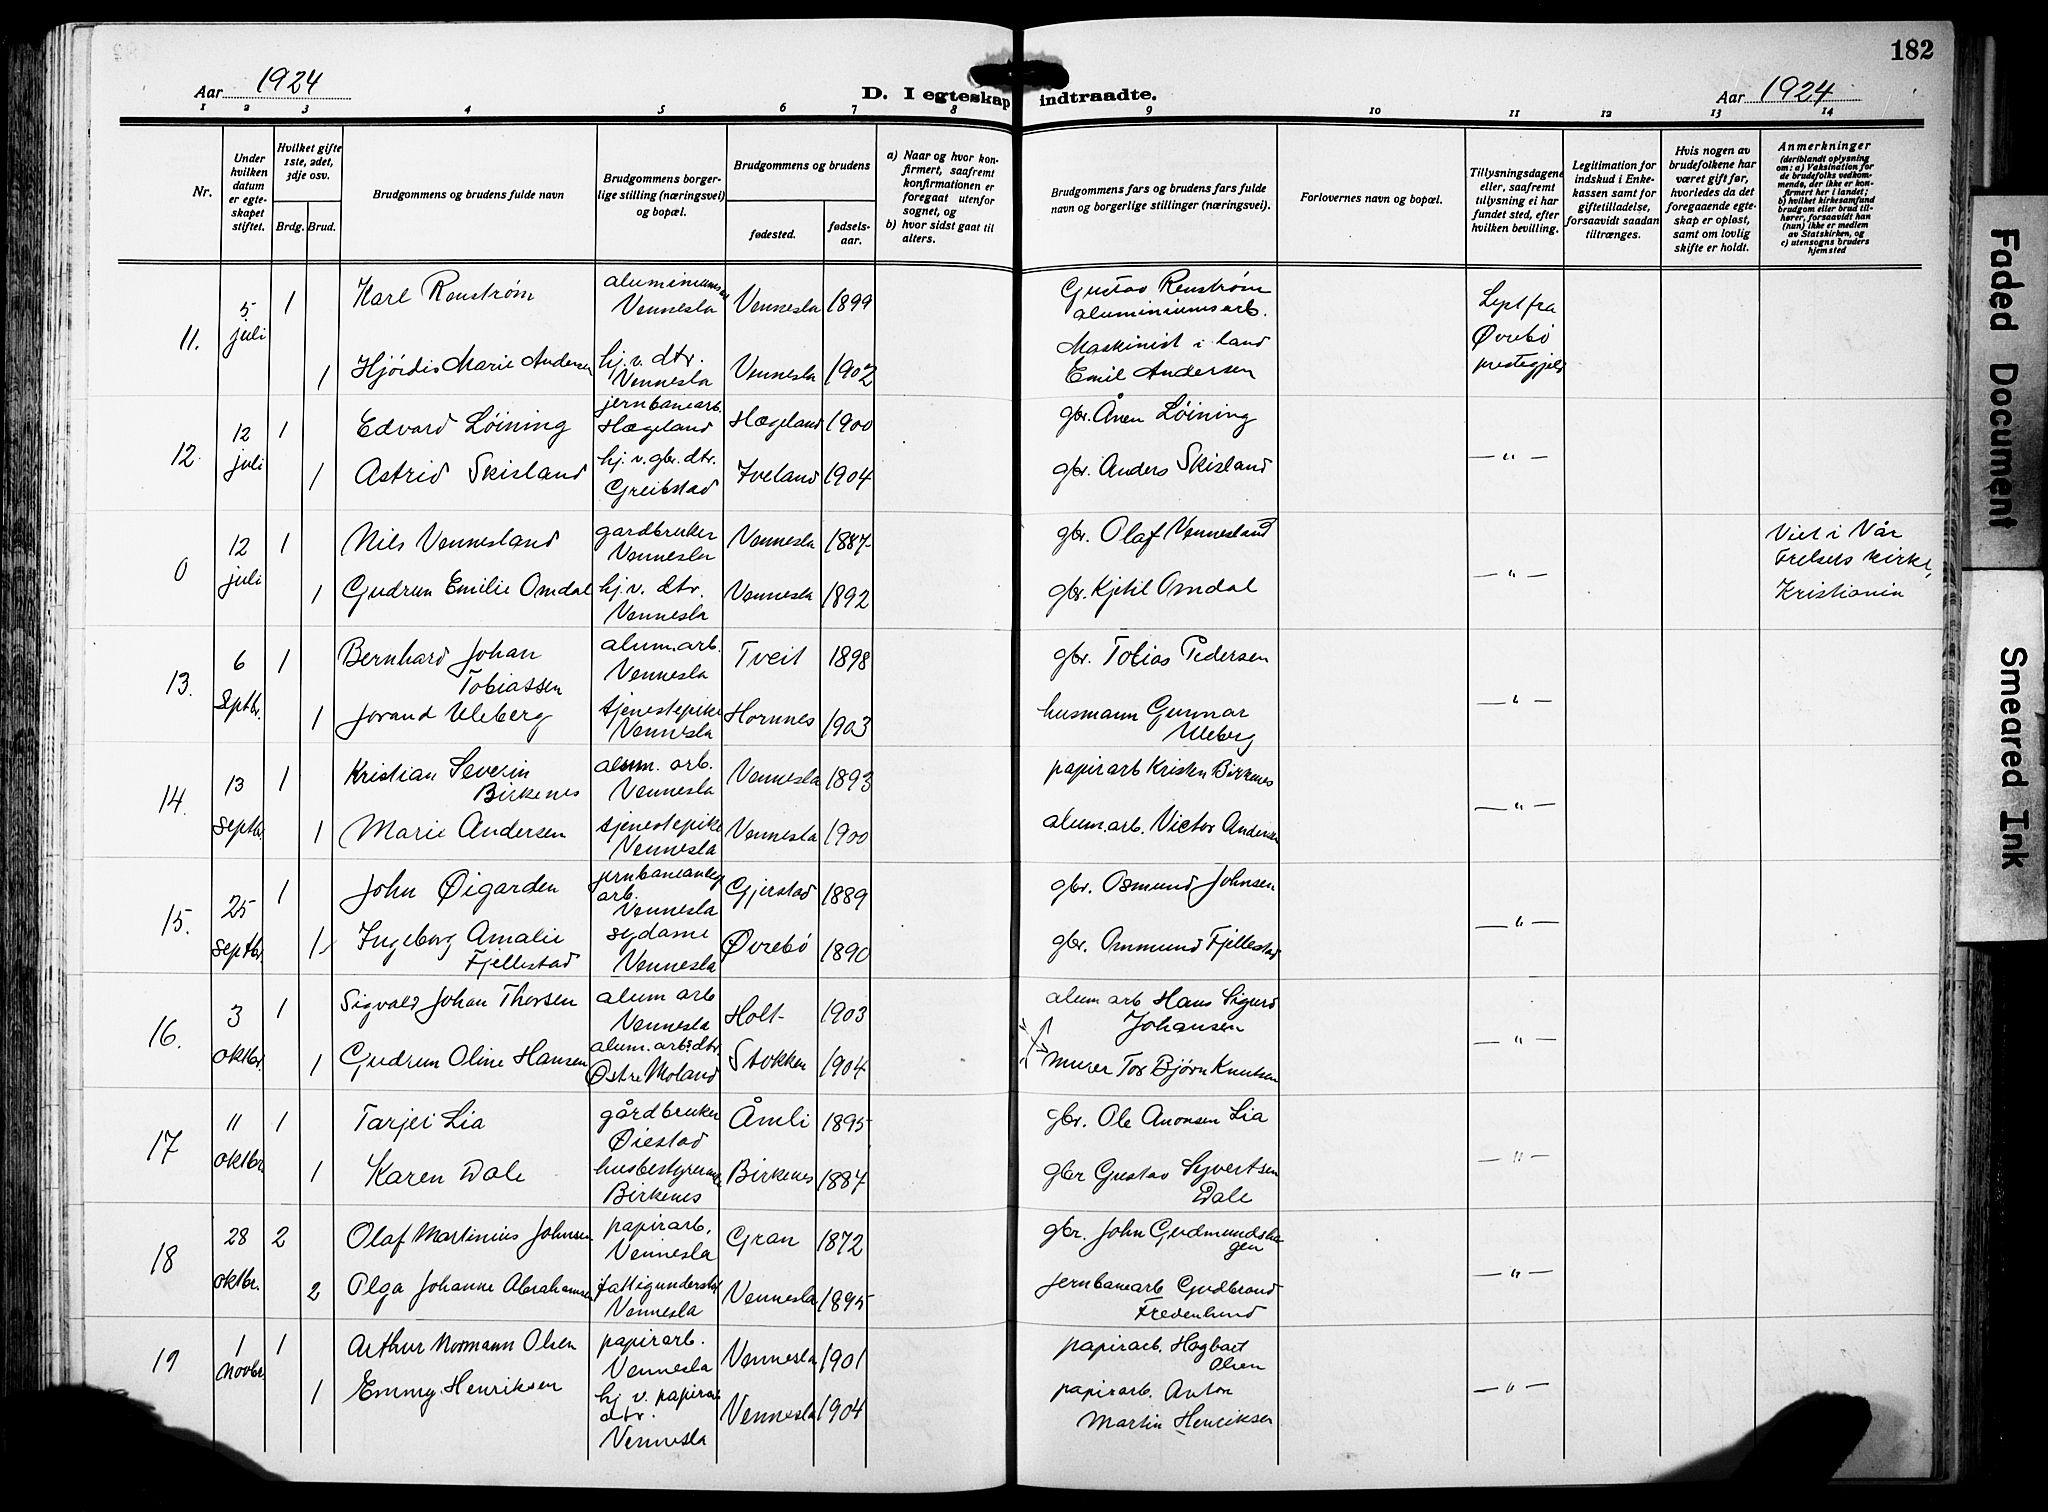 182
Aar 1924
D. I egteskap indtraadte.
Aar 1924
1 2 3 4 5 6 7 8 9 10 11 12 13 14
Nr.
Under hvilken datum er egteskapet stiftet.
Hvilket gifte 1ste, 2det, 3dje osv.
Brdg. Brud.
Brudgommens og brudens fulde navn
Brudgommens borgerlige stilling (næringsvei) og bopæl.
Brudgommens og brudens
fødested.
fødselsaar.
a) Naar og hvor konfirmert, saafremt konfirmationen er foregaat utenfor sognet, og
b) hvor sidst gaat til alters.
Brudgommens fars og brudens fars fulde navn og borgerlige stillinger (næringsvei).
Forlovernes navn og bopæl.
Tillysningsdagene eller, saafremt tillysning ei har fundet sted, efter hvilken bevilling.
Legitimation for indskud i Enkekassen samt for giftetilladelse, forsaavidt saadan tiltrænges.
Hvis nogen av brudefolkene har været gift før, hvorledes da det foregaaende egteskap er opløst, samt om lovlig skifte er holdt.
Anmerkninger
(deriblandt oplysning om: a) Vaksination for de brudefolks vedkommende, der ikke er konfirmert her i landet; b) hvilket kirkesamfund brudgom eller brud tilhører, forsaavidt han (hun) ikke er medlem av Statskirken, og c) utensogns bruders hjemsted
11. 5 juli 1 Karl Renstrøm aluminiumsarb. Vennesla Vennesla 1899 Gustav Renstrøm aluminiumsarb. Lyst fra Øvrebø prestegjeld
1 Hjørdis Marie Andersen hj. v. dtr. Vennesla Vennesla 1902 Maskinist i land Emil Andersen
12 12 juli 1 Edvard Løining jernbanearb. Hægeland Hægeland 1900 gbr. Ånen Løining
1 Astrid Skisland hj. v. gbr. dtr. Greibstad Iveland 1904 gbr. Anders Skisland — " —
0 12 juli 1 Nils Vennesland gardbruker Vennesla Vennesla 1887 gbr. Olaf Vennesland Viet i Vår Frelsers kirke, Kristiania
1 Gudrun Emilie Omdal hj. v. dtr. Vennesla Vennesla 1892 gbr. Kjetil Omdal — " —
13. 6 Septbr. 1 Bernhard Johan Tobiassen alum.arb. Vennesla Tveit 1898 gbr. Tobias Pedersen
1 Jorand Uleberg tjenestepike Vennesla Hornnes 1903 husmann Gunnar Uleberg — " —
14. 13 septbr. 1 Kristian Severin Birkenes alum. arb. Vennesla Vennesla 1893 papirarb Kristen Birkenes
1 Marie Andersen tjenestepike Vennesla Vennesla 1900 alum.arb. Victor Andersen — " —
15. 25 septbr. 1 John Øigarden jernbaneanlegsarb. Vennesla Gjerstad 1889 gbr. Osmund Johnsen
1 Ingeborg Amalie Fjellestad sydame Vennesla Øvrebø 1890 gbr. Ommund Fjellestad — " —
16. 3 oktbr. 1 Sigvald Johan Thorsen alum arb Vennesla Holt 1903 alum arb Hans Sigurd Johansen
1 Gudrun Oline Hansen alum. arb. dtr. Østre Moland Stokken 1904 murer Tor Bjørn Knutsen — " —
17 11 oktbr 1 Tarjei Lia gårdbruker Øiestad Åmli 1895 gbr. Ole Aanonsen Lia
1 Karen Dale husbestyrerinne Birkenes Birkenes 1884 gbr Gustav Syvertsen Dale — " —
18 28 oktbr. 2 Olaf Martinius Johnsen papirarb. Vennesla Gran 1872 gbr. John Gudmundshagen
2 Olga Johanne Abrahamsen fattigunderst. Vennesla Vennesla 1895 jernbanearb Gudbrand Fredenlund — " —
19 1 novbr. 1 Arthur Normann Olsen papirarb. Vennesla Vennesla 1901 papirarb. Hagbart Olsen
1 Emmy Henriksen hj v. papirarb dtr. Vennesla Vennesla 1904 papirarb. Anton Martin Henriksen — " —
Faded Document
Smeared Ink